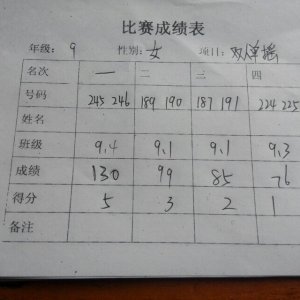 比赛成绩表
年级: 9 性别: 女 项目: 双单摇
名次 一 二 三 四
号码 245 246 189 190 187 191 224 225
姓名
班级 9.4 9.1 9.1 9.3
成绩 130 99 85 76
得分 5 3 2 1
备注